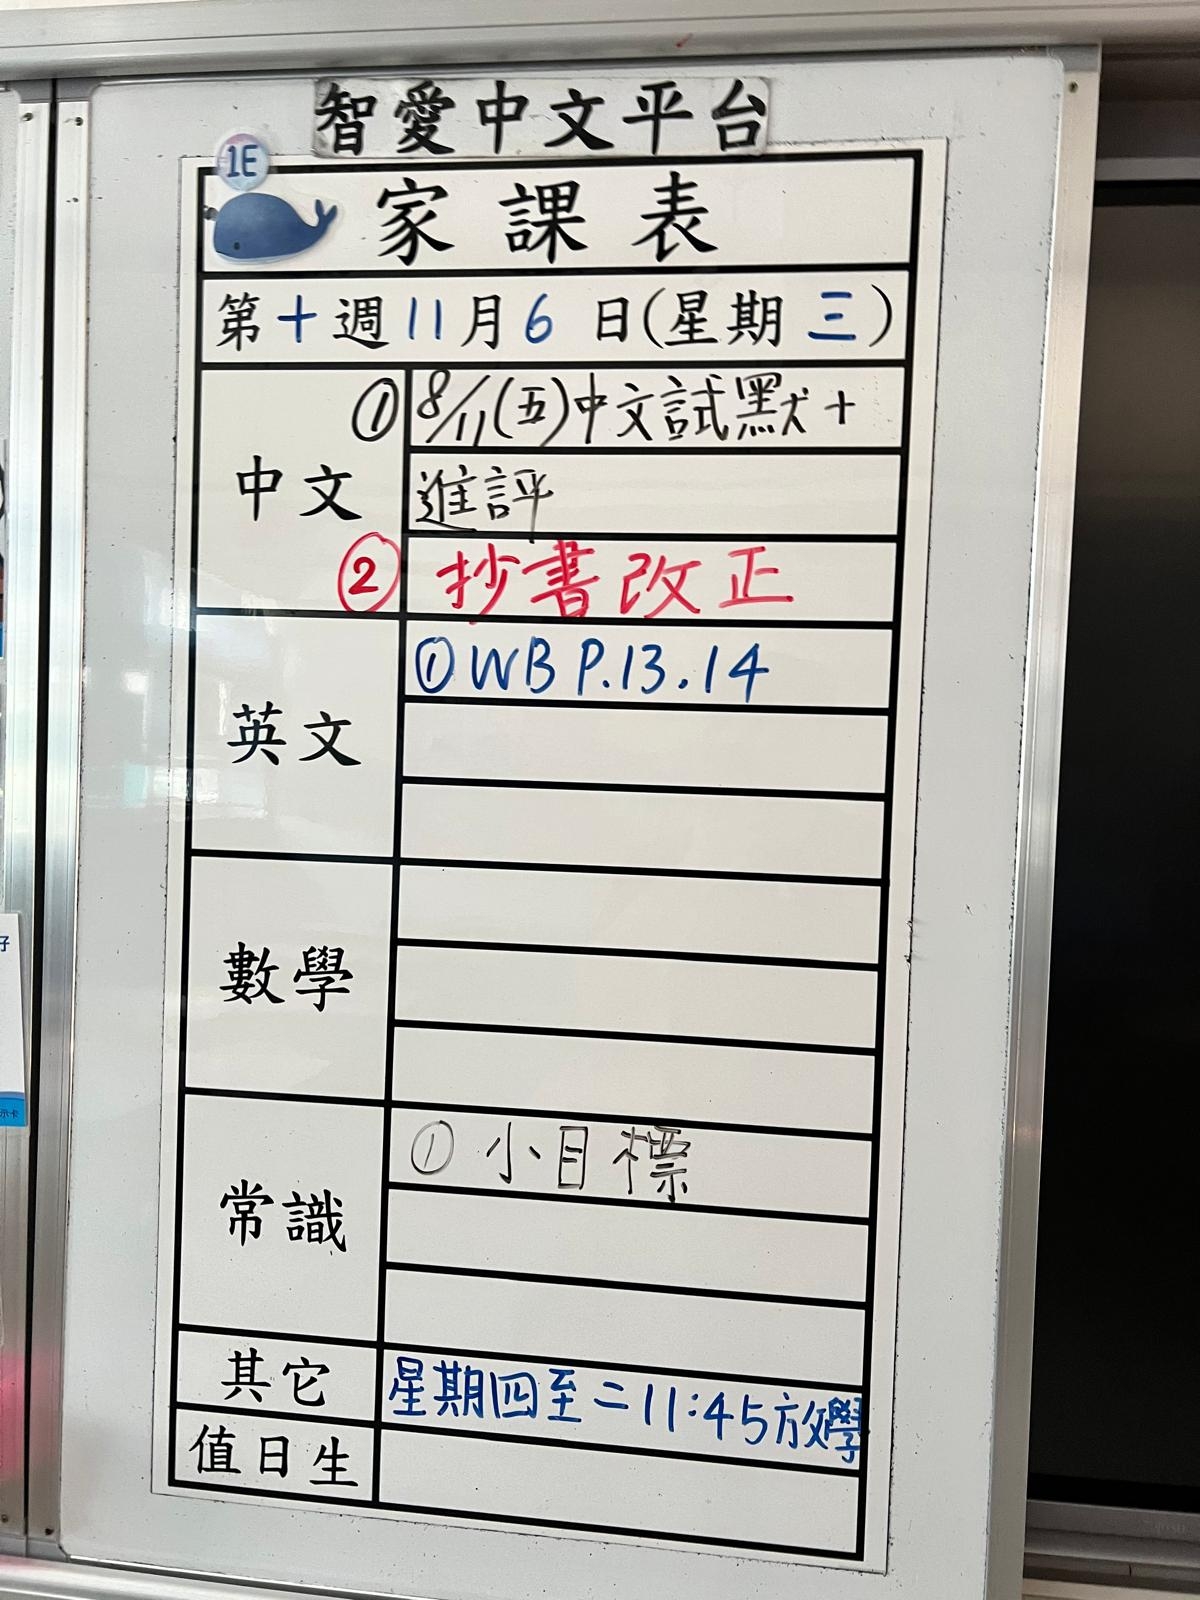 智愛中文平台
1E
家課表
第十週11月6日(星期三)
中文
① 8/11(五)中文試默+
進評
② 抄書改正
英文
①WB P.13.14
數學
常識
① 小目標
其它
星期四至二11:45放學
值日生
好
示卡